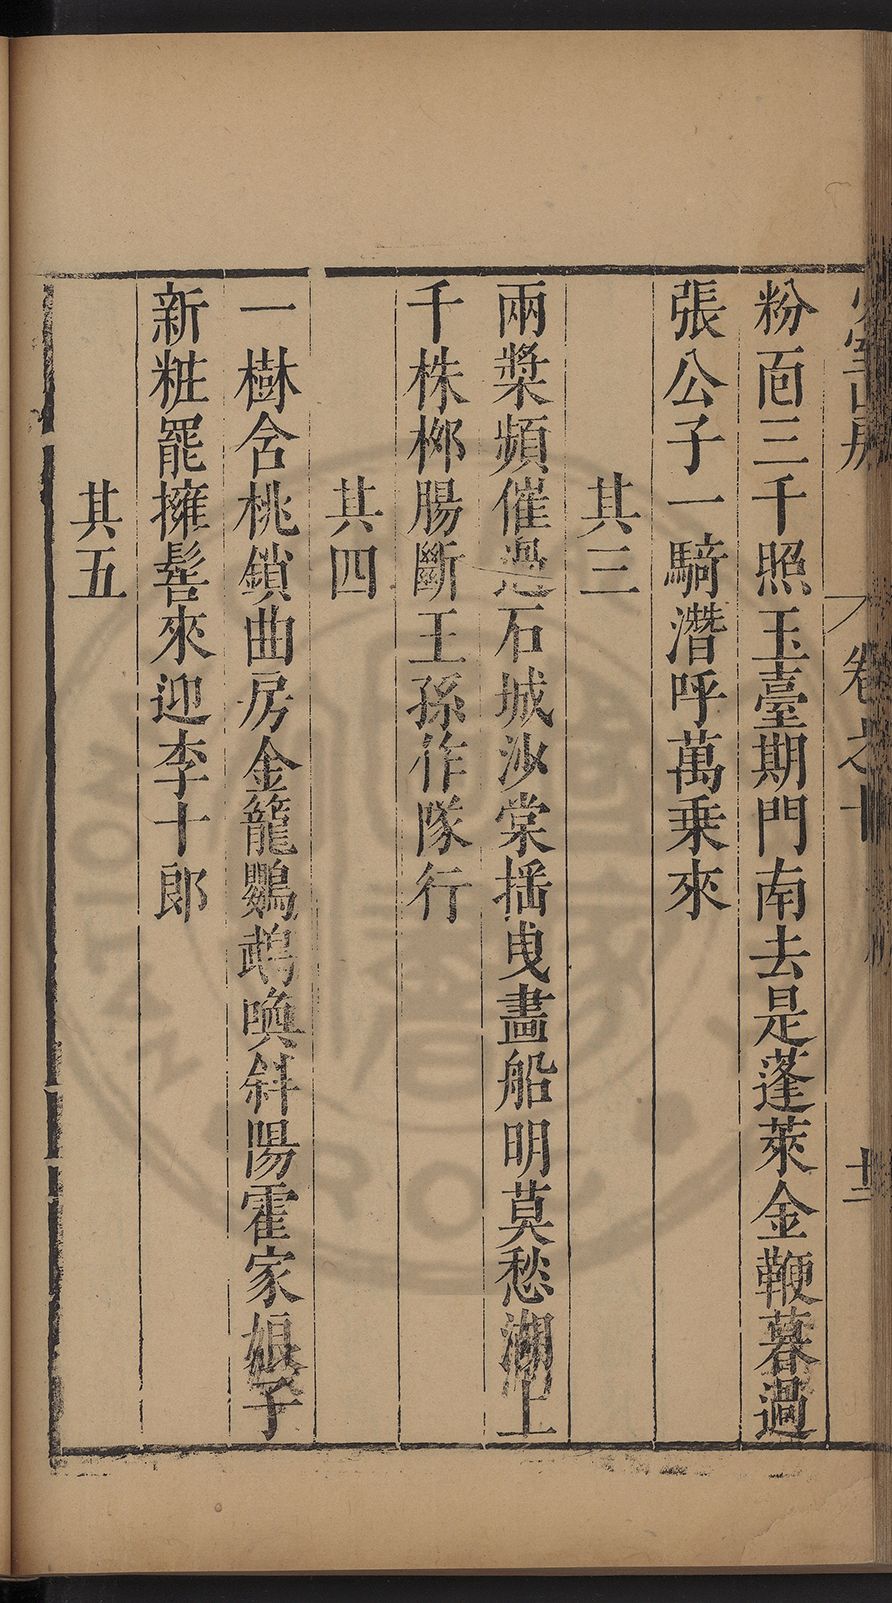 粉面三千照玉臺期門南去是蓬萊金鞭暮過
張公子一騎潛呼萬乗來
其三
兩槳頻催過石城沙棠揺曳畵船明莫愁湖上
千株桞腸斷王孫作隊行
其四
一樹含桃鎖曲房金籠鸚鵡喚斜陽霍家娘子
新粧罷擁髻來迎李十郎
其五